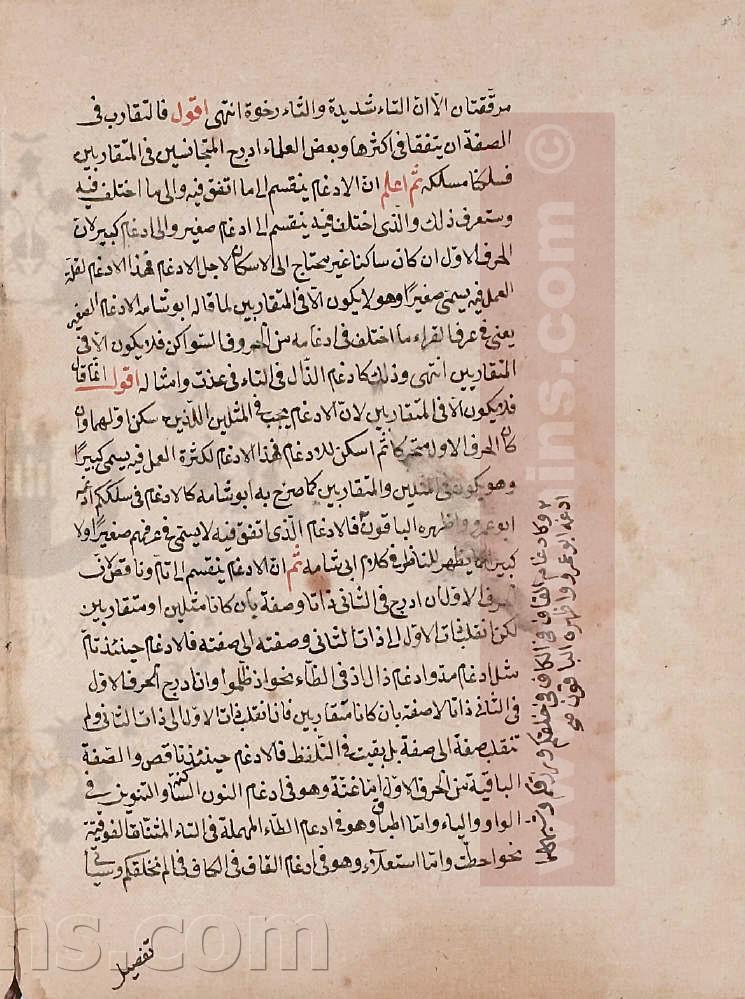 مرقّقتان الّا انّ التاء شديدة والثاء رخوة انتهى اقول فالتقارب فى
الصفة ان يتفقا فى اكثرها وبعض العلماء ادرج المتجانسين فى المتقاربين
فسلكنا مسلكه ثمّ اعلم انّ الادغام ينقسم الى ما اتفق فيه والى ما اختلف فيه
وستعرف ذلك والّذى اختلف فيه ينقسم الى ادغام صغير والى ادغام كبير لانّ
الحرف الاوّل ان كان ساكنا غير محتاج الى الاسكان لاجل الادغام فهذا الادغام لقلة
العمل فيه يسمى صغيرًا وهو لا يكون الّا فى المتقاربين لما قاله ابو شامه الادغام الصغير
يعنى فى عرف القراء ما اختلف فى ادغامه من الحروف السواكن فلا يكون الّا فى
المتقاربين انتهى وذلك كادغام الذّال فى التاء فى عذت وامثاله اقول انّما قال
فلا يكون الّا فى المتقاربين لانّ الادغام يجب فى المثلين اللّذين سكن اولهما وان
كان الحرف الاول متحركا ثمّ اسكن للادغام فهذا الادغام لكثرة العمل فيه يسمى كبيرًا
وهو يكون فى المثلين والمتقاربين كما صرّح به ابو شامه كالادغام فى سلككم ادغمه
ابو عمرو واظهره الباقون فالادغام الّذى اتفق فيه لا يسمّى فى عرفهم صغيرًا ولا
كبيرًا كما يظهر للناظر فى كلام ابى شامه ثمّ انّ الادغام ينقسم الى تام وناقص لانّ
الحرف الاول ان ادرج فى الثانى ذاتا وصفة بان كانا مثلين او متقاربين
لكن انقلب ذات الاوّل الى ذات الثانى وصفته الى صفته فالادغام حينئذ تامّ
مثل ادغام مدّ وادغام ذال اذ فى الظّاء نحو اذ ظلموا وان ادرج الحرف الاوّل
فى الثانى ذاتا لا صفة بان كانا متقاربين فانقلب ذات الاوّل الى ذات الثانى ولم
تنقلب صفة الى صفة بل بقيت فى التلفظ فالادغام حينئذ ناقص والصّفة
الباقية من الحرف الاوّل امّا غنّة وهو فى ادغام النون الساكنة والتنوين فى
الواو والياء وامّا اطباق وهو فى ادغام الطّاء المهملة فى التاء المثنّاة الفوقيّة
نحو احطت وامّا استعلاء وهو فى ادغام القاف فى الكاف فى الم نخلقكم وسيأتى
تفصيل
وكادغام القاف فى الكاف فى خلقكم
ادغمه ابو عمرو واظهره الباقون صح
ins.com ©
www.
ns.com